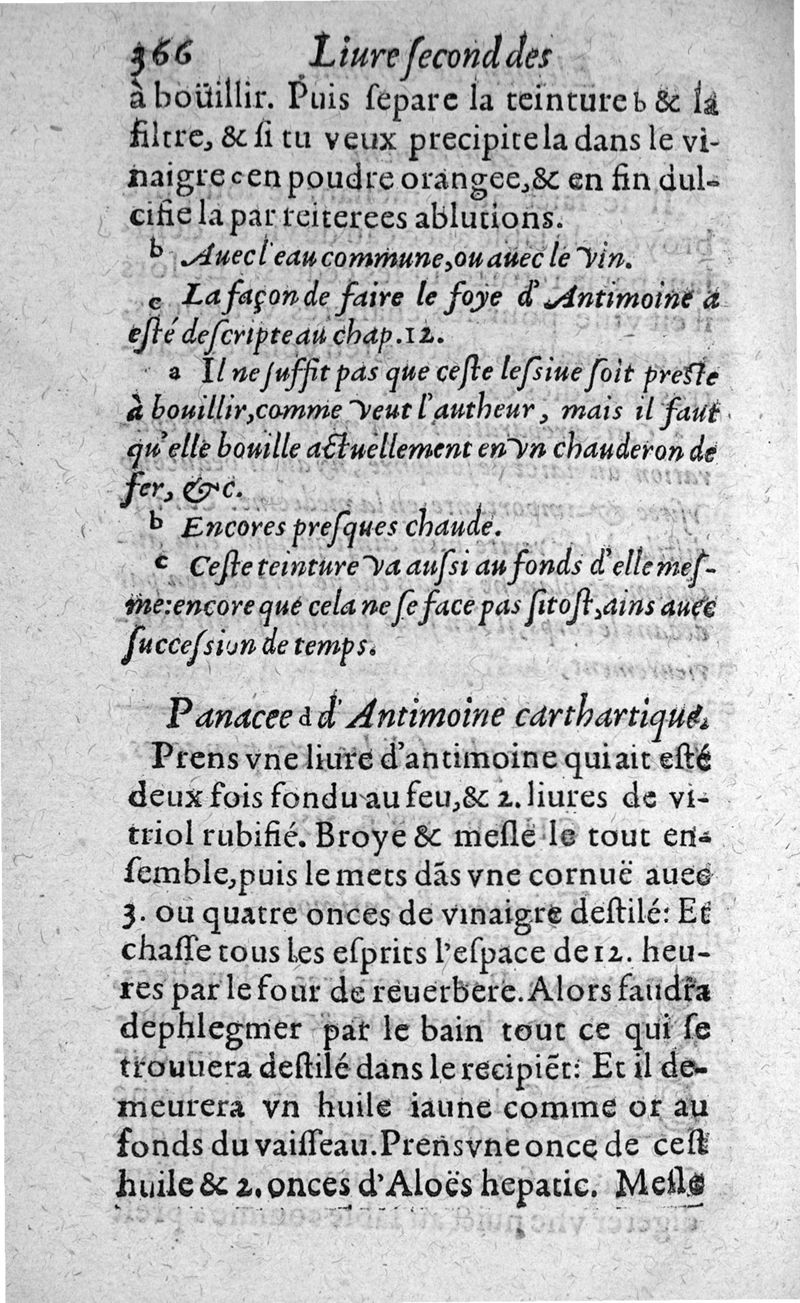 366 Liure ſecond des
à boüillir. Puis ſepare la teinture b & la
filtre, & ſi tu veux precipite la dans le vi-
naigre c en poudre orangee, & en fin dul-
cifie la par reiterees ablutions.
b Auec l'eau commune, ou auec le vin.
c La façon de faire le foye d'Antimoine a
eſté deſcripte au chap. 12.
a Il ne ſuffit pas que ceſte leſsiue ſoit preſte
à bouillir, comme veut l'autheur, mais il faut
qu'elle bouille actuellement en vn chauderon de
fer, &c.
b Encores preſques chaude.
c Ceſte teinture va auſsi au fonds d'elle meſ-
me: encore que cela ne ſe face pas ſi toſt, ains auec
ſucceſsion de temps.
Panacee a d'Antimoine carthartique.
Prens vne liure d'antimoine qui ait eſté
deux fois fondu au feu, & 2. liures de vi-
triol rubifié. Broye & meſle le tout en-
ſemble, puis le mets dãs vne cornuë auec
3. ou quatre onces de vinaigre deſtilé: Et
chaſſe tous les eſprits l'eſpace de 12. heu-
res par le four de reuerbere. Alors faudra
dephlegmer par le bain tout ce qui ſe
trouuera deſtilé dans le recipiẽt: Et il de-
meurera vn huile iaune comme or au
fonds du vaiſſeau. Prens vne once de ceſt
huile & 2. onces d'Aloës hepatic. Meſle